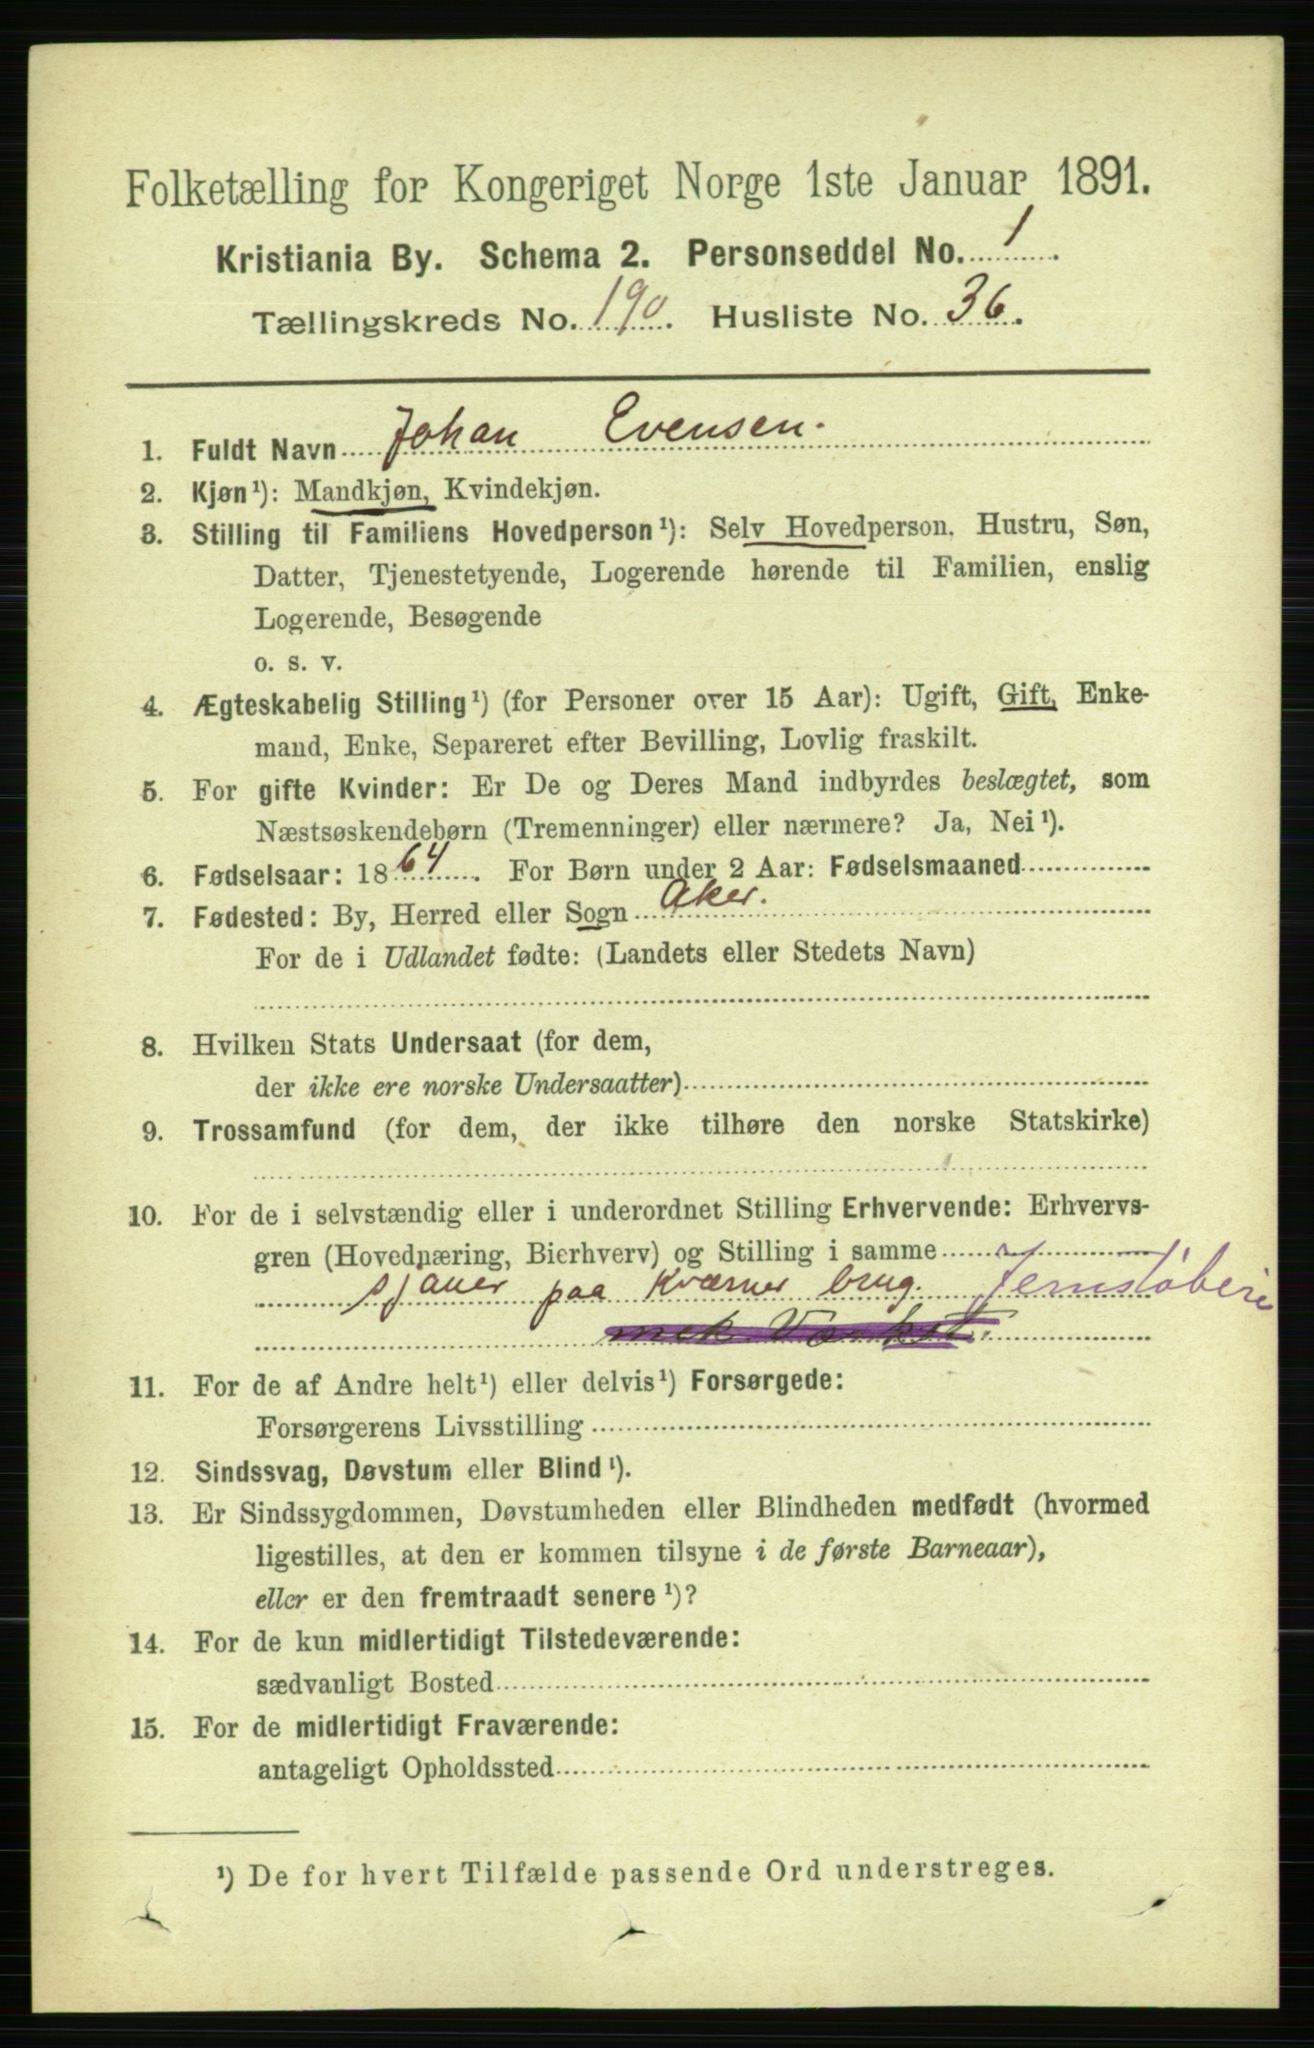 Folketælling for Kongeriget Norge 1ste Januar 1891.
Kristiania By. Schema 2. Personseddel No. 1.
Tællingskreds No. 190. Husliste No. 36.
1. Fuldt Navn Johan Evensen.
2. Kjøn¹): Mandkjøn, Kvindekjøn.
3. Stilling til Familiens Hovedperson¹): Selv Hovedperson. Hustru, Søn,
Datter, Tjenestetyende, Logerende hørende til Familien, enslig
Logerende, Besøgende
o. s. v.
4. Ægteskabelig Stilling¹) (for Personer over 15 Aar): Ugift, Gift, Enke-
mand, Enke, Separeret efter Bevilling, Lovlig fraskilt.
5. For gifte Kvinder: Er De og Deres Mand indbyrdes beslægtet, som
Næstsøskendebørn (Tremenninger) eller nærmere? Ja, Nei¹).
6. Fødselsaar: 1864. For Børn under 2 Aar: Fødselsmaaned
7. Fødested: By, Herred eller Sogn Aker.
For de i Udlandet fødte: (Landets eller Stedets Navn)
8. Hvilken Stats Undersaat (for dem,
der ikke ere norske Undersaatter)
9. Trossamfund (for dem, der ikke tilhøre den norske Statskirke)
10. For de i selvstændig eller i underordnet Stilling Erhvervende: Erhvervs-
gren (Hovednæring, Bierhverv) og Stilling i samme
sjauer paa Kværner brug. Jernstøberi
mek Værkst.
11. For de af Andre helt¹) eller delvis¹) Forsørgede:
Forsørgerens Livsstilling
12. Sindssvag, Døvstum eller Blind¹).
13. Er Sindssygdommen, Døvstumheden eller Blindheden medfødt (hvormed
ligestilles, at den er kommen tilsyne i de første Barneaar),
eller er den fremtraadt senere¹)?
14. For de kun midlertidigt Tilstedeværende:
sædvanligt Bosted
15. For de midlertidigt Fraværende:
antageligt Opholdssted
¹) De for hvert Tilfælde passende Ord understreges.